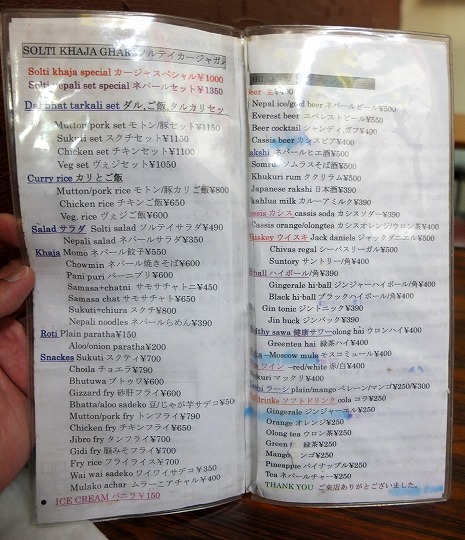 SOLTI KHAJA GHAR ソルティカージャガ
Solti khaja special カージャスペシャル¥1000
Solti nepali set special ネパールセット¥1350
Dal bhat tarkali set ダル,ご飯,タルカリセッ
Mutton/pork set モトン/豚セット¥1150
Sukuti set スクチセット¥1150
Chicken set チキンセット¥1100
Veg set ヴェジセット¥1050
Curry rice カリとご飯
Mutton/pork rice モトン/豚カリご飯¥800
Chicken rice チキンご飯¥650
Veg. rice ヴェジご飯¥600
Salad サラダ Solti salad ソルテイサラダ¥490
Nepali salad ネパールサラダ¥350
Khaja Momo ネパール餃子¥550
Chowmin ネパール焼きそば¥600
Pani puri パーニプリ¥600
Samasa+chatni サモサチャトニ¥450
Samasa chat サモサチャト¥650
Sukuti+chiura スクチ¥800
Nepali noodles ネパールらめん¥390
Roti Plain paratha¥150
Aloo/onion paratha¥200
Snackes Sukuti スクティ¥700
Choila チョエラ¥790
Bhutuwa ブトゥワ¥600
Gizzard fry 砂肝フライ¥600
Bhatta/aloo sadeko 豆/じゃが芋サデコ¥500
Mutton/pork fry トンフライ¥790
Chicken fry チキンフライ¥650
Jibro fry タンフライ¥700
Gidi fry 脳みそフライ¥700
Fry rice フライライス¥700
Wai wai sadeko ワイワイサデコ¥350
Mulako achar ムラーこアチャル¥400
ICE CREAM バニラ ¥150
Beer 生¥400
Nepal ice/god beer ネパールビール¥500
Everest beer エベレストビール¥550
Beer cocktail シャンディガフ¥400
Cassis beer カシスビア¥400
Rakshi ネパールヒエ酒¥500
Somras ソムラスそば酒¥500
Khukuri rum ククリラム¥500
Japanese rakshi 日本酒¥390
kahlua milk カルーアミルク¥390
Cassis カシス cassis soda カシスソダー¥390
Cassis orange/olongtes カシスオレンジ/ウロン茶¥400
Whiskey ウイスキ Jack daniels ジャックダニエル¥500
Chivas regal シーバスリーガル¥500
Suntory サントリー/角¥400
Hi-ball ハイボール/角¥390
Gingerale hi-ball ジンジャーハイボール/角¥400
Black hi-ball ブラックハイボール/角¥400
Gin tonic ジントニック¥390
Jin buck ジンバック¥390
healthy sawa 健康サワーolong hai ウロンハイ¥400
Greentea hai 緑茶ハイ¥400
–Moscow mule モスコミュール¥400
ワイン –red/white 赤/白¥400
マックリ ¥400
ラーシ plain/mango ペレーン/マンゴ¥250/¥300
drinks ソフトドリンク cola コラ¥250
Gingerale ジンジャーエル¥250
Orange オレンジ¥250
Olong tea ウロン茶¥250
Green 緑茶¥250
Mango ンゴ ¥250
Pineapple パイナップル¥250
Tea ネパールチャー¥250
THANK YOU ご来店ありがとございました。